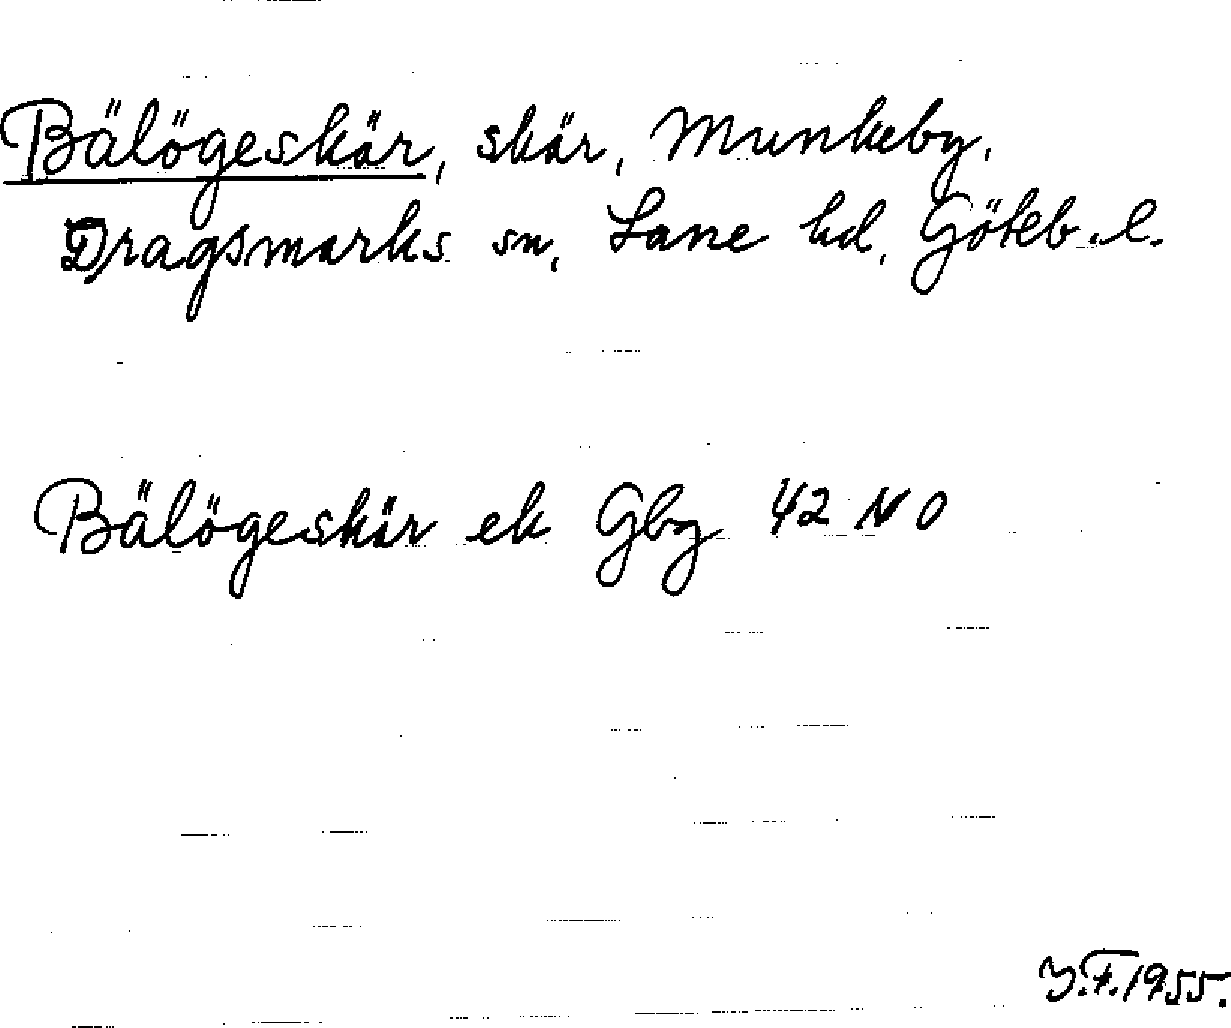 Bälögeskär, skär, Munkeby,
Dragsmarks sn, Lane hd, Göteb. l.
Bälögeskär ek Gby 42 NO
Y.F. 1955.